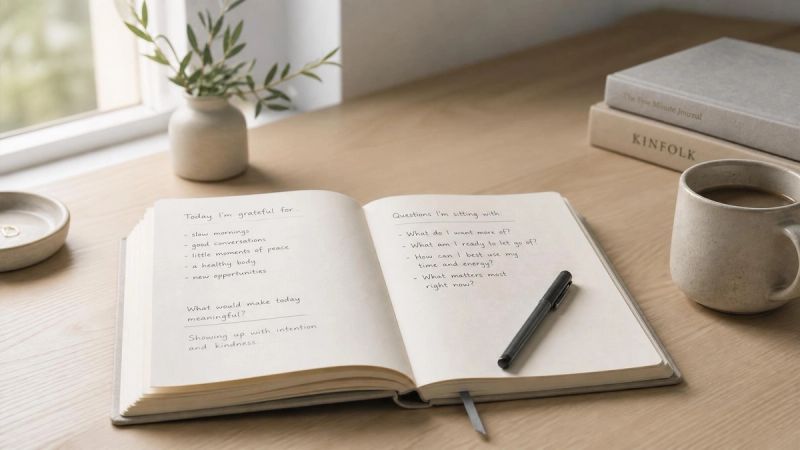 Today I'm grateful for...
- slow mornings
- good conversations
- little moments of peace
- a healthy body
- new opportunities
What would make today
meaningful?
Showing up with intention
and kindness.
Questions I'm sitting with...
- What do I want more of?
- What am I ready to let go of?
- How can I best use my
time and energy?
- What matters most
right now?
The Five Minute Journal
KINFOLK